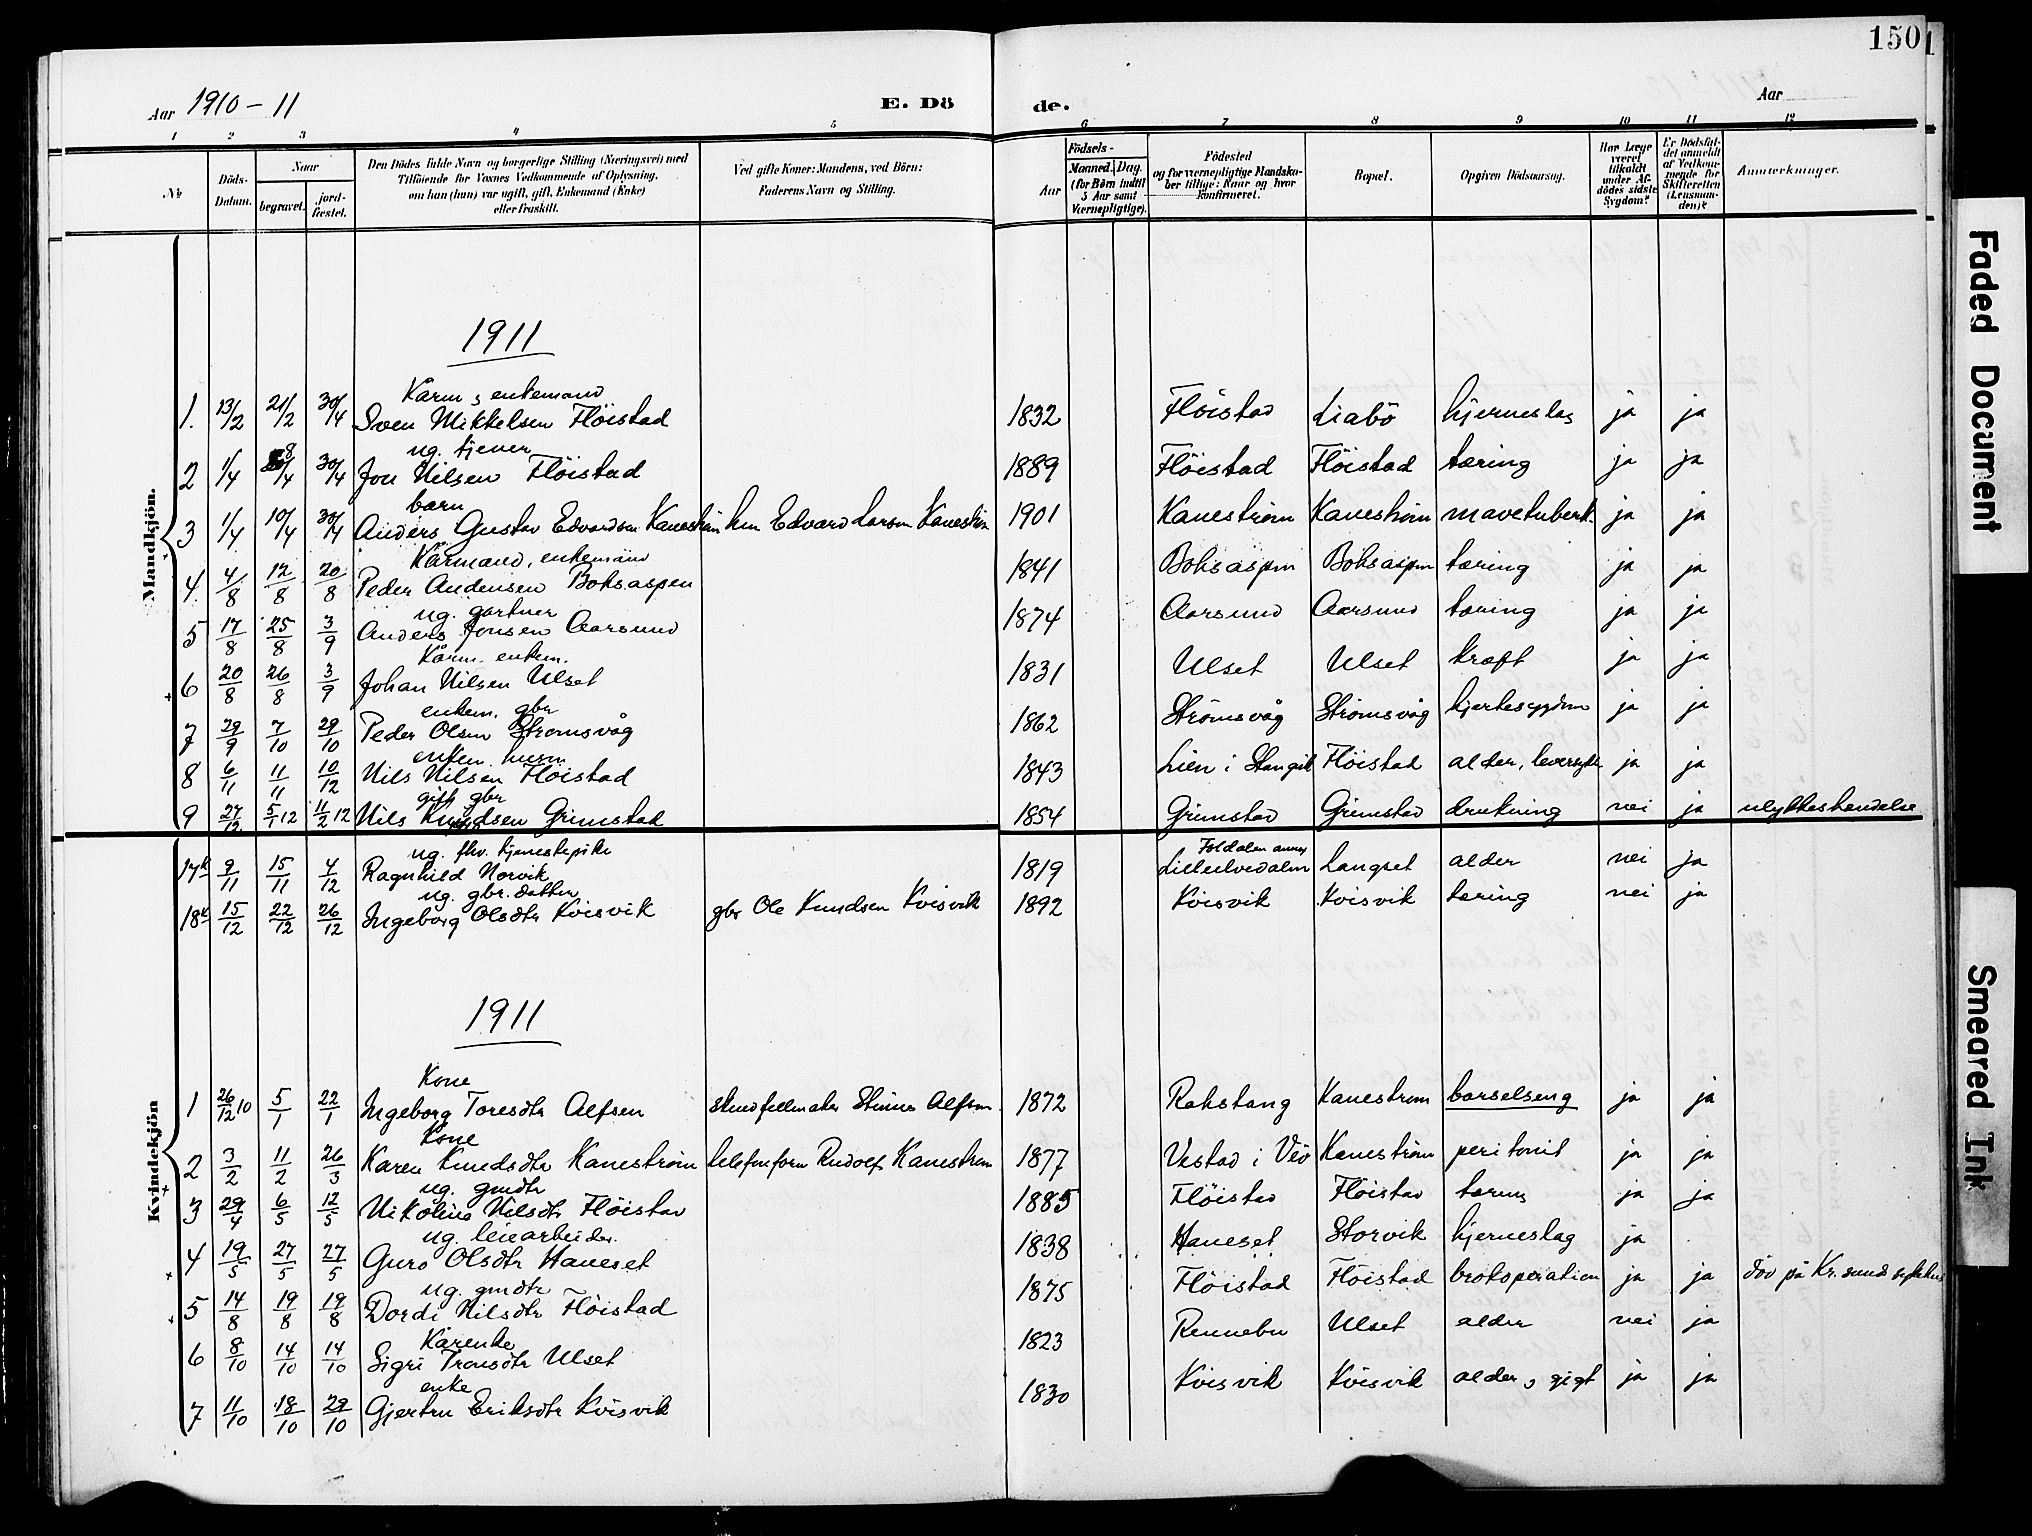 150
Aar 1910 – 11 E. Dö de. Aar
1 2 3 4 5 6 7 8 9 10 11 12
No
Döds-Datum.
Naar
begravet.
jord-fæstet.
Den Dödes fulde Navn og borgerlige Stilling (Næringsvei) med
Tilföiende for Voxnes Vedkommende af Oplysning,
om han (hun) var ugift, gift, Enkemand (Enke)
eller fraskilt.
Ved gifte Koner: Mandens, ved Börn:
Faderens Navn og Stilling.
Födsels-
Aar
Maaned. Dag.
(for Börn indtil
5 Aar samt
Værnepligtige).
Födested
og for værnepligtige Mandska-
ber tillige: Naar og hvor
konfirmeret.
Bopæl.
Opgiven Dödsaarsag.
Har Læge
været
tilkaldt
under Af-
dödes sidste
Sygdom?
Er Dödsfal-
det anmeldt
af Vedkom-
mende for
Skifteretten
(Lensman-
den)?
Anmærkninger.
Mandkjön.
1911
Kårm, enkemand
1. 13/2 21/2 30/4 Sven Mikkelsen Flöistad 1832 Flöistad Liabö hjerneslag ja ja
ug. tjener
2 1/4 8/4 30/4 Jon Nilsen Flöistad 1889 Flöistad Flöistad tæring ja ja
barn
3 1/4 10/4 30/4 Anders Gustav Edvardsen Kaneström hm Edvard Larsen Kaneström 1901 Kaneström Kaneström mavetuberk. ja ja
Kårmand, enkemand
4. 4/8 12/8 20/8 Peder Andersen Boksaspen 1841 Boksaspen Boksaspen tæring ja ja
ug. gartner
5 17/8 25/8 3/9 Anders Jonsen Aarsund 1874 Aarsund Aarsund tæring ja ja
Kårm. enkem.
6 20/8 26/8 3/9 Johan Nilsen Ulset 1831 Ulset Ulset kræft ja ja
enkem. gbr
7 29/9 7/10 29/10 Peder Olsen Strömsvåg 1862 Strömsvåg Strömsvåg hjertesygdom ja ja
enkem husm
8 6/11 11/11 10/12 Nils Nilsen Flöistad 1843 Lien i Stangvik Flöistad alder, leversyk ja ja
gift gbr
9 27/12 5/1 12 11/2 12 Nils Knudsen Grimstad 1854 Grimstad Grimstad drukning nei ja ulykkeshendelse
ug. fhv. tjenestepike
17k 9/11 15/11 4/12 Ragnhild Norvik 1819 Foldalen annex Lilleelvedalen Langset alder nei ja
ug. gbr. datter
18k 15/12 22/12 26/12 Ingeborg Olsdtr Kvisvik gbr Ole Knudsen Kvisvik 1892 Kvisvik Kvisvik tæring nei ja
Kvindekjön
1911
Kone
1 26/12 10 5/1 22/1 Ingeborg Toresdtr Alfsen skindfellmaker Alfsen 1872 Rakstang Kaneström barselseng ja ja
Kone
2 3/2 11/2 26/3 Karen Knudsdtr Kaneström telefonform Rudolf Kaneström 1877 Vestad i Veö Kaneström peritonit ja ja
ug. gmdtr
3 29/4 6/5 12/5 Nikoline Nilsdtr Flöistad 1885 Flöistad Flöistad tæring ja ja
ug. leiearbeider.
4 19/5 27/5 27/5 Guro Olsdtr Haneset 1838 Haneset Storvik hjerneslag ja
ug. gmdtr
5 14/8 19/8 19/8 Dordi Nilsdtr Flöistad 1875 Flöistad Flöistad brokoperation ja ja död på Kr.sund sykehus
Kårenke
6 8/10 14/10 14/10 Sigri Tronsdtr Ulset 1823 Rennebu Ulset alder nei ja
enke
7 11/10 18/10 29/10 Gjertru Eriksdtr Kvisvik 1830 Kvisvik Kvisvik alder, gigt ja ja
Faded Document
Smeared Ink